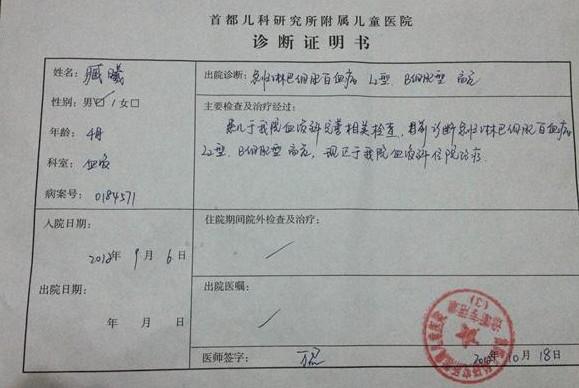 首都儿科研究所附属儿童医院
诊断证明书
姓名：臧曦
性别：男☑/女□
年龄：4月
科室：血液
病案号：0184571
入院日期：
2012年 9月 6日
出院日期：
年 月 日
出院诊断：急性淋巴细胞白血病 L2型. B细胞型 高危
主要检查及治疗经过：
患儿于我院血液科完善相关检查，目前诊断急性淋巴细胞白血病
L2型. B细胞型 高危，现还于我院血液科住院治疗.
住院期间院外检查及治疗：
出院医嘱：
医师签字：
年10月18日
诊断专用章
(3)